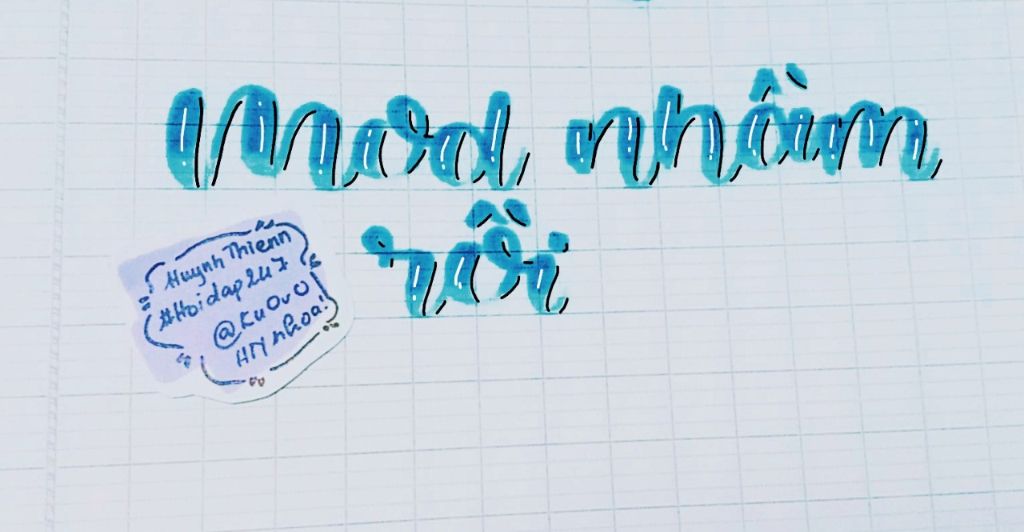 Mod nhầm
rồi
HuynhThienn
#Hoidap247
@KuOvO
HM nhoa!